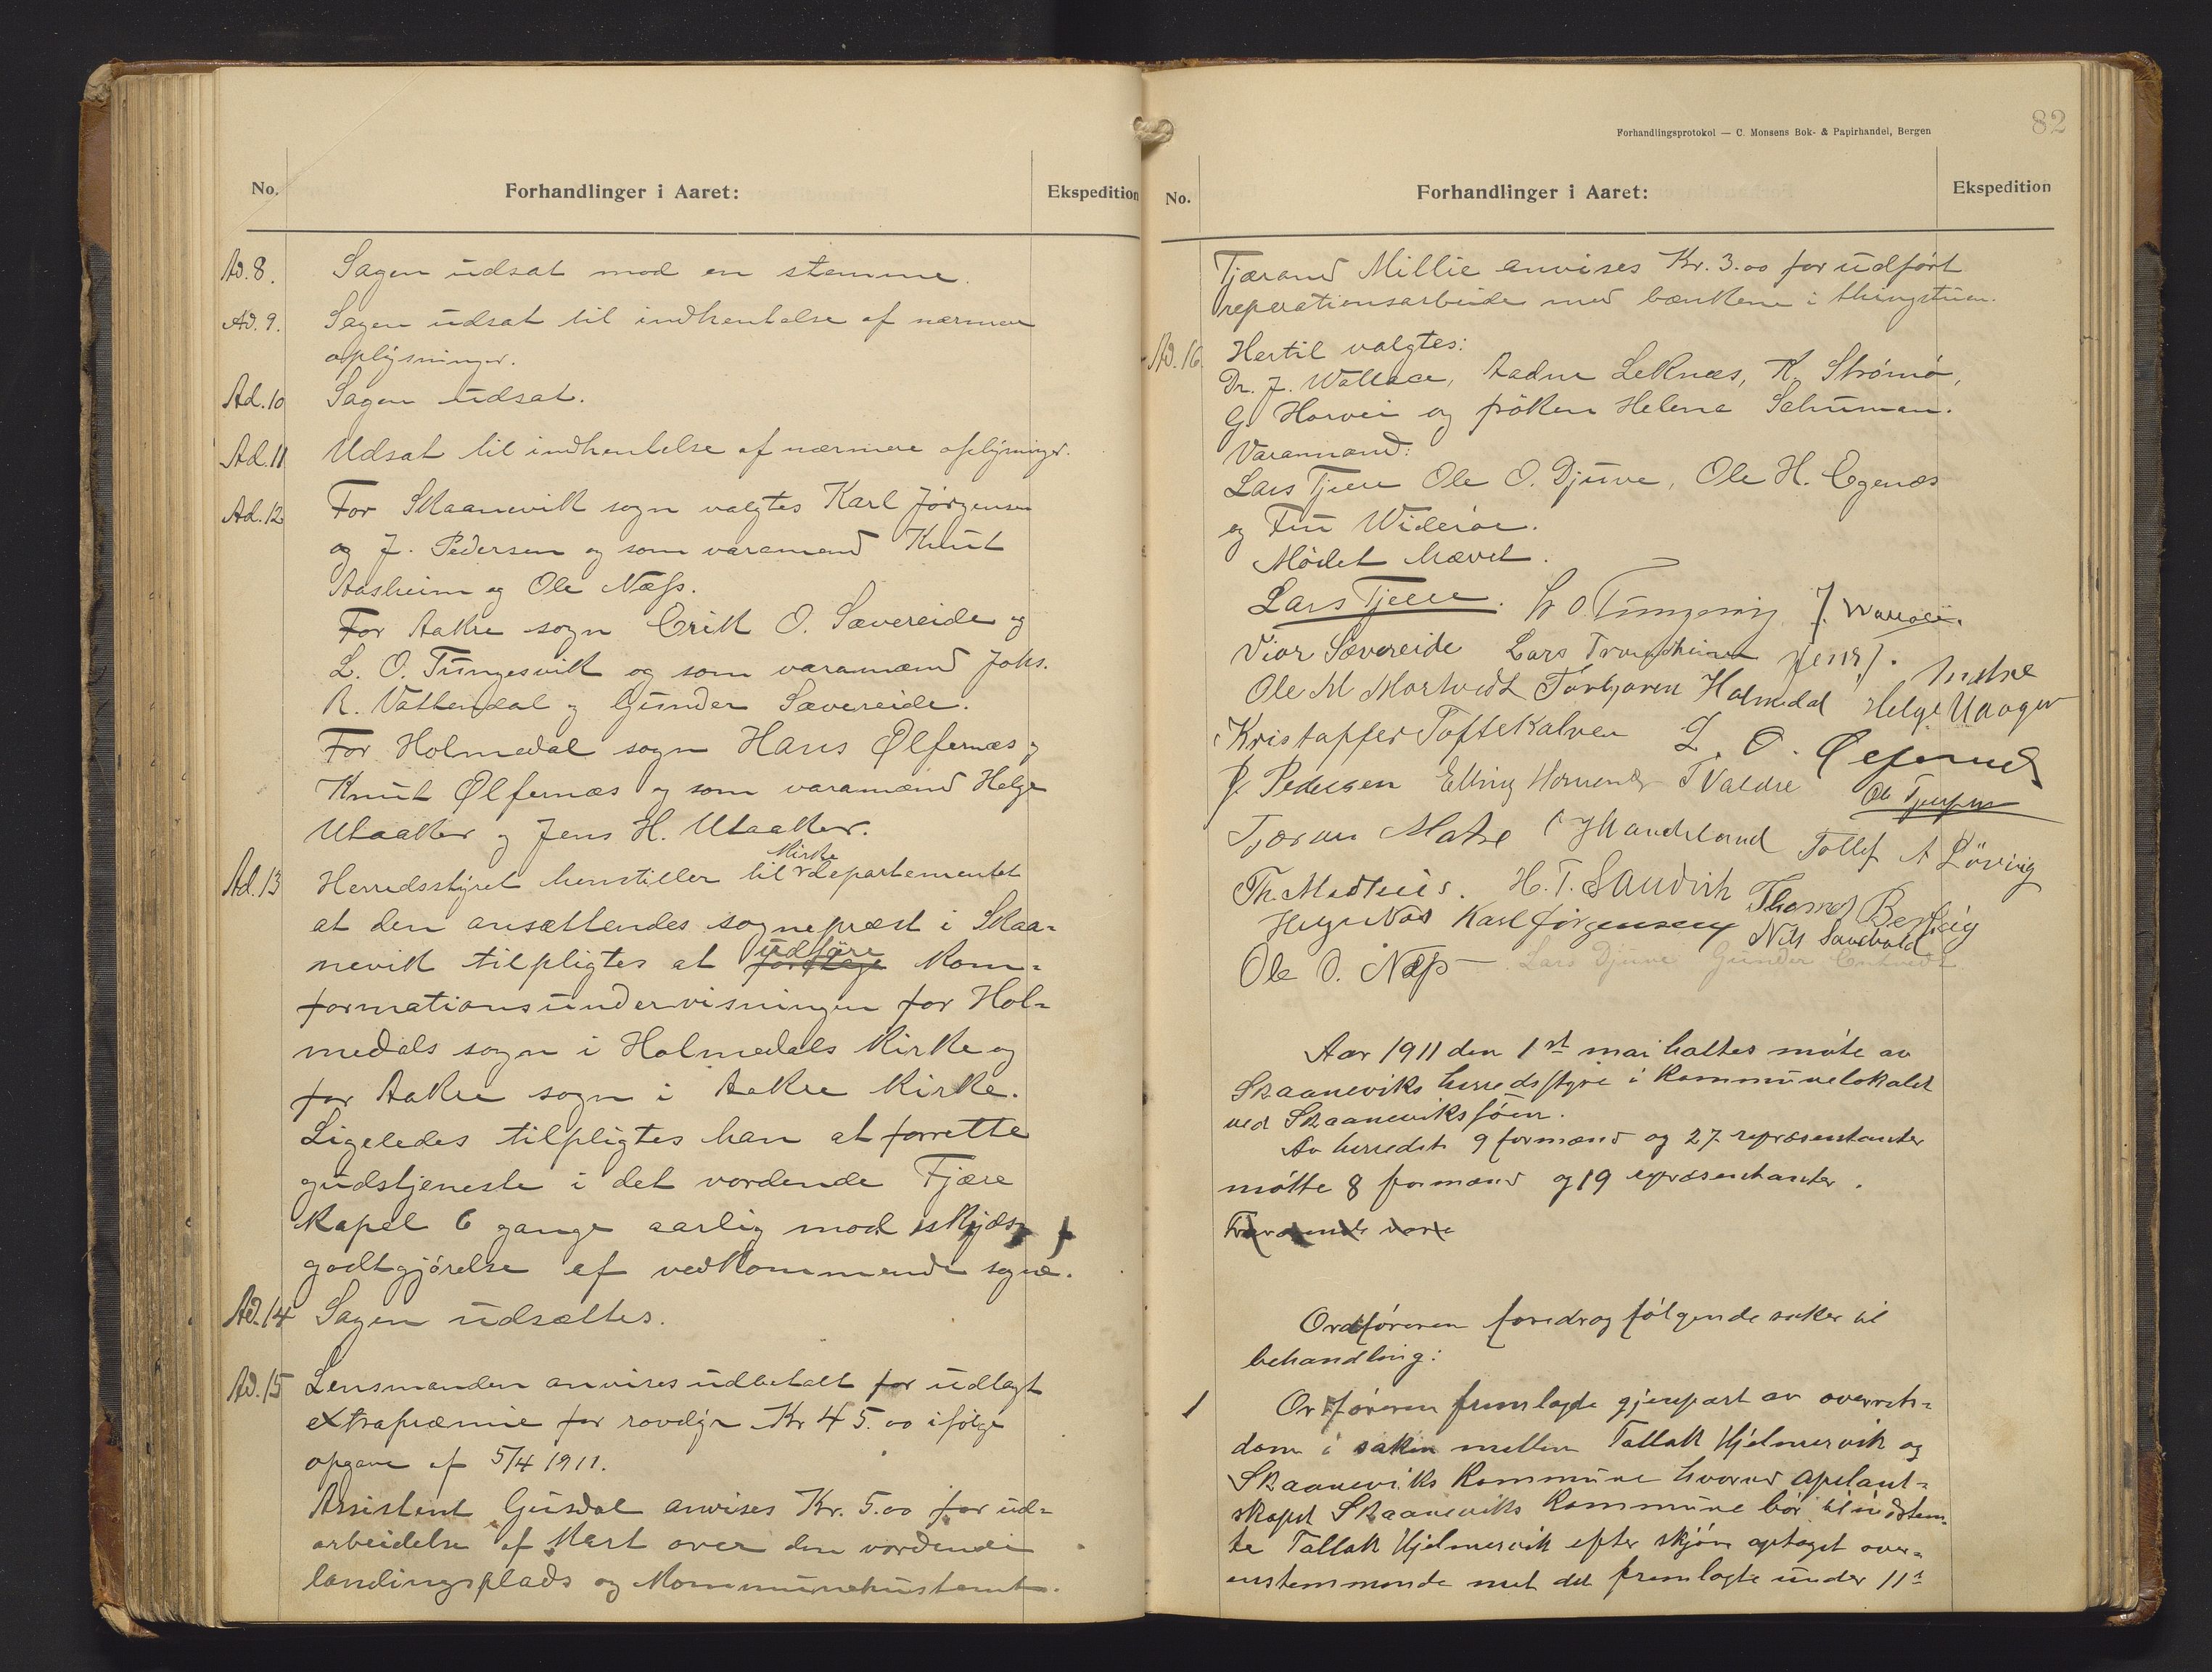 No. Forhandlinger i Aaret: Ekspedition
Ad. 8. Sagen udsat mod en stemme.
Ad. 9. Sagen udsat til indhentelse af nærmere
oplysninger.
Ad. 10 Sagen udsat.
Ad. 11 Udsat til indhentelse af nærmere oplysninger.
Ad. 12 For Skaanevik sogn valgtes Karl Jørgensen
og J. Pedersen og som varamænd Knut
Aasheim og Ole Næss.
For Aakre sogn Erik O. Sævereide og
L. O. Tungesvik og som varamænd Johs.
R. Vattendal og Gunder Sævereide.
For Holmedal sogn Hans Ølfernæs og
Knut Ølfernæs og som varamænd Helge
Utaaker og Jens H. Utaaker.
Ad. 13 Herredsstyret henstiller til kirkedepartementet
at den ansættendes sogneprest i Skaa-
nevik tilpligtes at udføre kon-
formationsundervisningen for Hol-
medals sogn i Holmedals kirke og
for Aakre sogn i Aakre kirke.
Ligeledes tilpligtes han at forrette
gudstjeneste i det vordende Fjære
kapel 6 gange aarlig mod skyds-
godtgjørelse af vedkommende sogne.
Ad. 14 Sagen udsættes.
Ad. 15 Lensmanden anvises udbetalt for udlagt
extrapræmie for rovdyr Kr 45.00 ifølge
opgave af 5/4 1911.
Assistent Gusdal anvises Kr. 5.00 for ud-
arbeidelse af kart over den vordende
landingsplads og kommunehustomt.
Forhandlingsprotokol — C. Monsens Bok- & Papirhandel, Bergen
82
No. Forhandlinger i Aaret: Ekspedition
Tjærand Millie anvises Kr. 3.00 for udført
reperationsarbeide med bænkene i thingstuen.
Ad. 16 Hertil valgtes:
Dr. J. Wallace, Aadne Leknæs, K. Strømø,
G. Horvei og frøken Helene Schuman.
Varamænd:
Lars Tjere Ole O. Djuve, Ole H. Egenæs
og Fru Widerøe.
Mødet hævet.
Lars Tjere. J. Wallace.
Vier Sævereide Lars
Ole M Mortvedt Torbjørn Holmedal Helge Utaager
Kristoffer Toftekalven L. O.
J. Pedersen T Valdre
Tjæran Matre Handeland Tollef A
Th. H. T. Sandvik Thomas
Helge Næs Karl Jørgensen Nils
Ole O. Næss Lars Djuve Gunder
Aar 1911 den 1st mai holtes møte av
Skaaneviks herredsstyre i kommunelokalet
ved Skaanevikssjøen.
Av herredets 9 formænd og 27 repræsentanter
møtte 8 formænd og 19 repræsentanter.
Fraværende vare
Ordføreren foredrog følgende saker til
behandling:
1 Ordføreren fremlagde gjenpart av overrets-
dom i saken mellem Tallak Hjelmervik og
Skaaneviks kommune hvorved apelant-
skapet Skaaneviks kommune bør til indstem-
te Tallak Hjelmervik efter skjøn optaget over-
enstemmende med det fremlagte under 11te